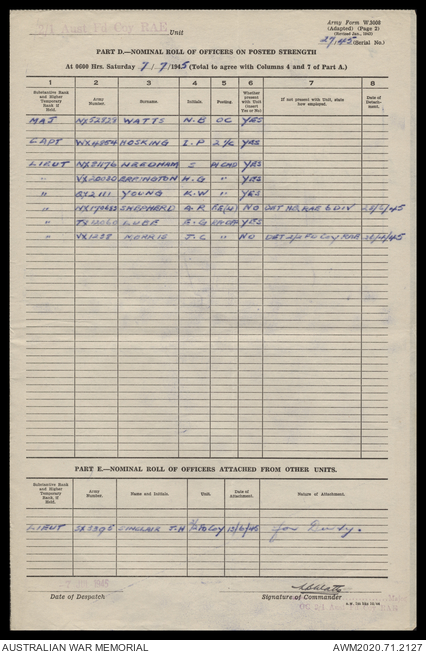 2/1 Aust Fd. Coy RAE Unit
Army Form W.3008
(Adapted) (Page 2)
(Revised Jan., 1945)
27/45 (Serial No.)
PART D.—NOMINAL ROLL OF OFFICERS ON POSTED STRENGTH
At 0600 Hrs. Saturday 7/7/1945 (Total to agree with Columns 4 and 7 of Part A.)
1 2 3 4 5 6 7 8
Substantive Rank and Higher Temporary Rank, if Held. Army Number. Surname. Initials. Posting. Whether present with Unit (Insert Yes or No) If not present with Unit, state how employed. Date of Detachment.
MAJ WATTS N.B OC YES
CAPT HOSKING I.P 2 I/C YES
LIEUT NEEDHAM S YES
" H.G " YES
" YOUNG K.W " YES
" SHEPHERD A.R NO DET HQ RAE 6 DIV
" LUBE YES
" VX1258 MORRIS J.C " NO DET 2/2 Fd Coy RAE
PART E.—NOMINAL ROLL OF OFFICERS ATTACHED FROM OTHER UNITS.
Substantive Rank and Higher Temporary Rank, if Held. Army Number. Name and Initials. Unit. Date of Attachment. Nature of Attachment.
LIEUT SINCLAIR J.H Fd Coy 13/6/45 for Duty.
Date of Despatch
Signature of Commander
AUSTRALIAN WAR MEMORIAL AWM2020.71.2127